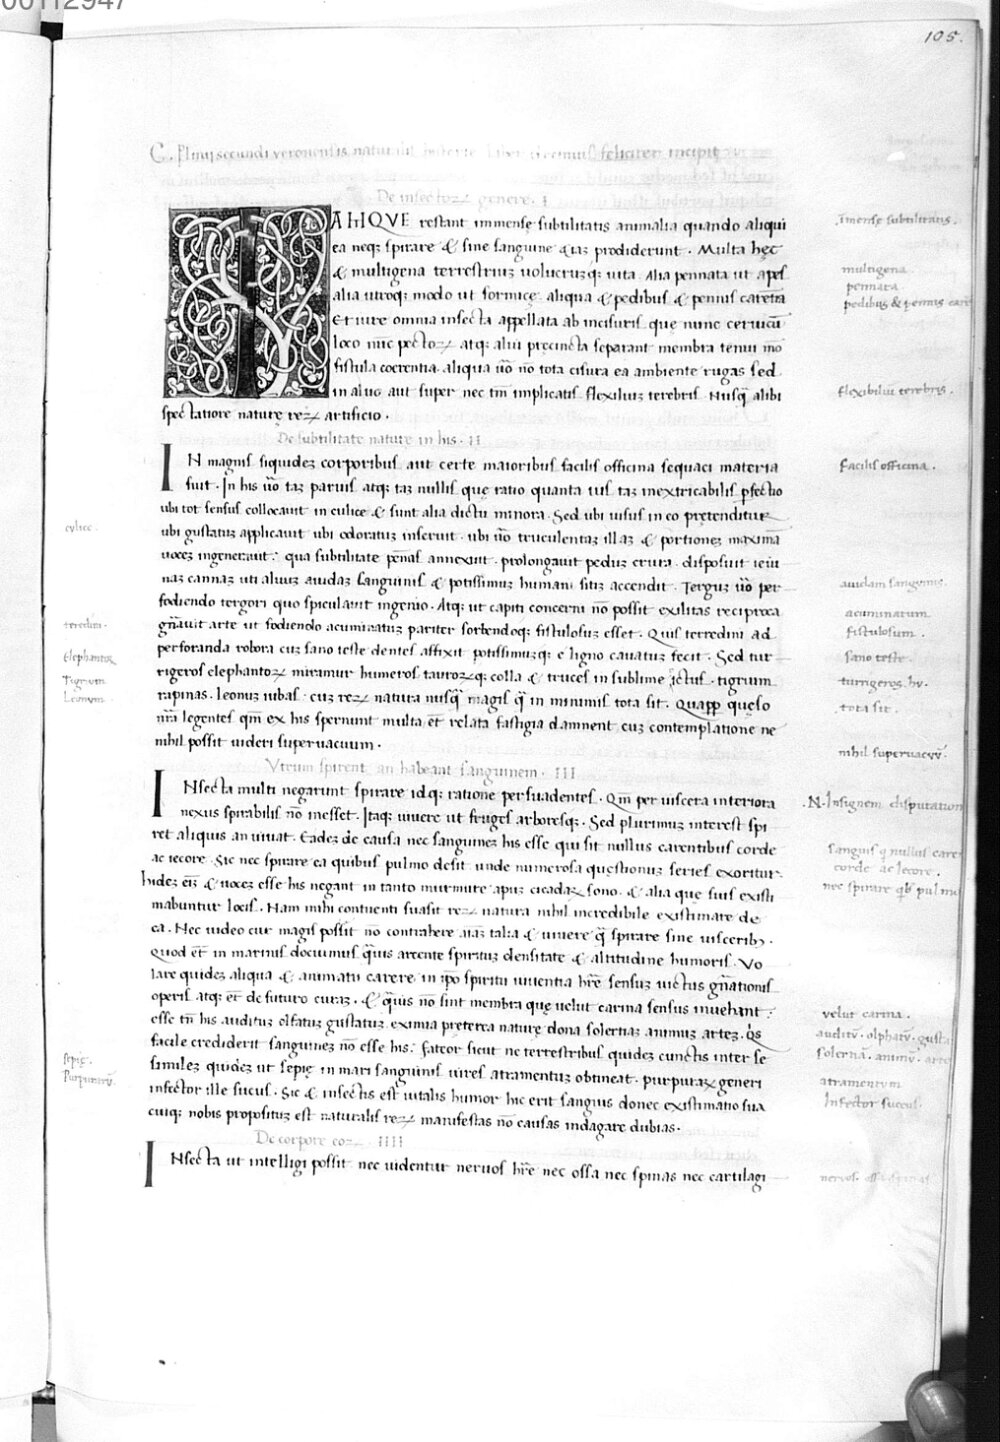 00112947
105.
C. Plinij secundi veronensis natur incipit
De insectoꝝ genere. I
AHIQVE restant immensę subtilitatis animalia quando aliqui
ea neqꝫ spirare & sine sanguine prodiderunt. Multa hęc
& multigena terrestriuꝫ uolucruꝫqꝫ uita. Alia pennata ut apes
alia utroqꝫ modo ut formicę. aliqua & pedibus & pennis
Et iure omnia insecta appellata ab incisuris que nunc ceruicū
loco nūc pectoꝝ atqꝫ alui pręcincta separant membra tenui
fistula coerentia. aliqua uō nō tota cisura ea ambiente rugas sed
in aluo aut super nec tm̄ implicatis flexiluiꝫ terebris. Nusq̄ alibi
spectatiore naturę reꝝ artificio.
De subtilitate nature in his. II
IN magnis siquideꝫ corporibus aut certe maioribus facilis officina sequaci materia
fuit. In his uō taꝫ paruis atqꝫ taꝫ nullis quę ratio quanta uis taꝫ inextricabilis ꝑfectio
ubi tot sensus collocauit in culice & sunt alia dictu minora. Sed ubi uisus in eo prętenditur
ubi gustatus applicauit ubi odoratus inseruit. ubi uō truculentaꝫ illaꝫ & portioneꝫ maxima
uoceꝫ ingenerauit: qua subtilitate pēnas annexuit. prolongauit peduꝫ crura. disposuit ieiu
naꝫ caueaꝫ uti aluuꝫ auidaꝫ sanguinis & potissimuꝫ humani sitiꝫ accendit. Terguꝫ uō per
fodiendo tergori quo spiculauit ingenio. Atqꝫ ut capiti concerni nō possit exilitas reciproca
gn̄auit arte ut fodiendo acuminatuꝫ pariter sorbendoqꝫ fistulosuꝫ esset. Quis terredini ad
perforanda robora cuꝫ sano teste dentes affixit potissimuꝫqꝫ e ligno cauatus fecit. Sed tur
rigeros elephantoꝝ miramur humeros tauroꝝqꝫ colla & truces in sublime ictus. tigrum
rapinas. leonuꝫ iubas. cuꝫ reꝝ natura nusq̄ magis q̄ in minimis tota sit. Quaꝓꝑ quęso
nr̄a legentes qm̄ ex his spernunt multa et̄ relata fastigia damnent cuꝫ contemplatione ne
nihil possit uideri superuacuum.
Vtrum spirent an habeant sanguinem. III
INsecta multi negarunt spirare idqꝫ ratione persuadentes. Qm̄ per uiscera interiora
nexus spirabilis nō inesset. Itaqꝫ uiuere ut fruges arboresqꝫ. Sed plurimuꝫ interest spi
ret aliquis an uiuat. Eadeꝫ de causa nec sanguineꝫ his esse qui sit nullus carentibus corde
ac iecore. Sic nec spirare ea quibus pulmo desit unde numerosa quęstionuꝫ series exoritur.
Iidez eīꝫ & uoceꝫ esse his negant in tanto murmure apuꝫ cicadaꝝ sono. & alia quę suis existi
mabuntur locis. Nam mihi contuenti suasit reꝝ natura nihil incredibile existimare de
ea. Nec uideo cur magis possit nō contrahere aīaꝫ talia & uiuere q̄ spirare sine uisceribꝫ.
Quod et̄ in marinis docuimus q̄uis arcente spirituꝫ densitate & altitudine humoris. Vo
lare quideꝫ aliqua & animatu carere in ip̄o spiritu uiuentia hr̄e sensuꝫ uictus gn̄ationis
operis atqꝫ et̄ de futuro curaꝫ. & q̄uis nō sint membra quę uelut carina sensus inuehant:
esse tn̄ his audituꝫ olfatuꝫ gustatuꝫ. eximia pręterea naturę dona solertiaꝫ animuꝫ arteꝫ. Q̇s
facile crediderit sanguineꝫ nō esse his: fateor sicut ne terrestribus quideꝫ cunctis inter se
simileꝫ quideꝫ ut sepię in mari sanguinis uires atramentuꝫ obtineat. purpuraꝝ generi
infector ille sucus. Sic & insectis est uitalis humor hic erit sanguis donec existimatio sua
cuiqꝫ nobis propositus est naturalis reꝝ manifestas nō causas indagare dubias.
De corpore eoꝝ. IIII
INsecta ut intelligi possit nec uidentur neruos hr̄e nec ossa nec spinas nec cartilagi
culice.
teredini.
Elephantoꝝ
Tigrum
Leonum.
sepię.
Purpurarū.
.Imense subtilitatis.
multigena
pennata
pedibus & pennis care
flexibiliū terebris.
Facilis officina.
auidam sanguinis.
acuminatum
fistulosum.
sano teste.
turrigeros hu.
.tota sit.
nihil superuacuū.
.N. Insignem disputation
sanguis q nullus care
corde ac Iecore.
nec spirare qb' pulmo
velut carina.
auditū. olphatū. gusta
solertiā. animū. arte
atramentum
Infector succus.
neruos. ossa spinas